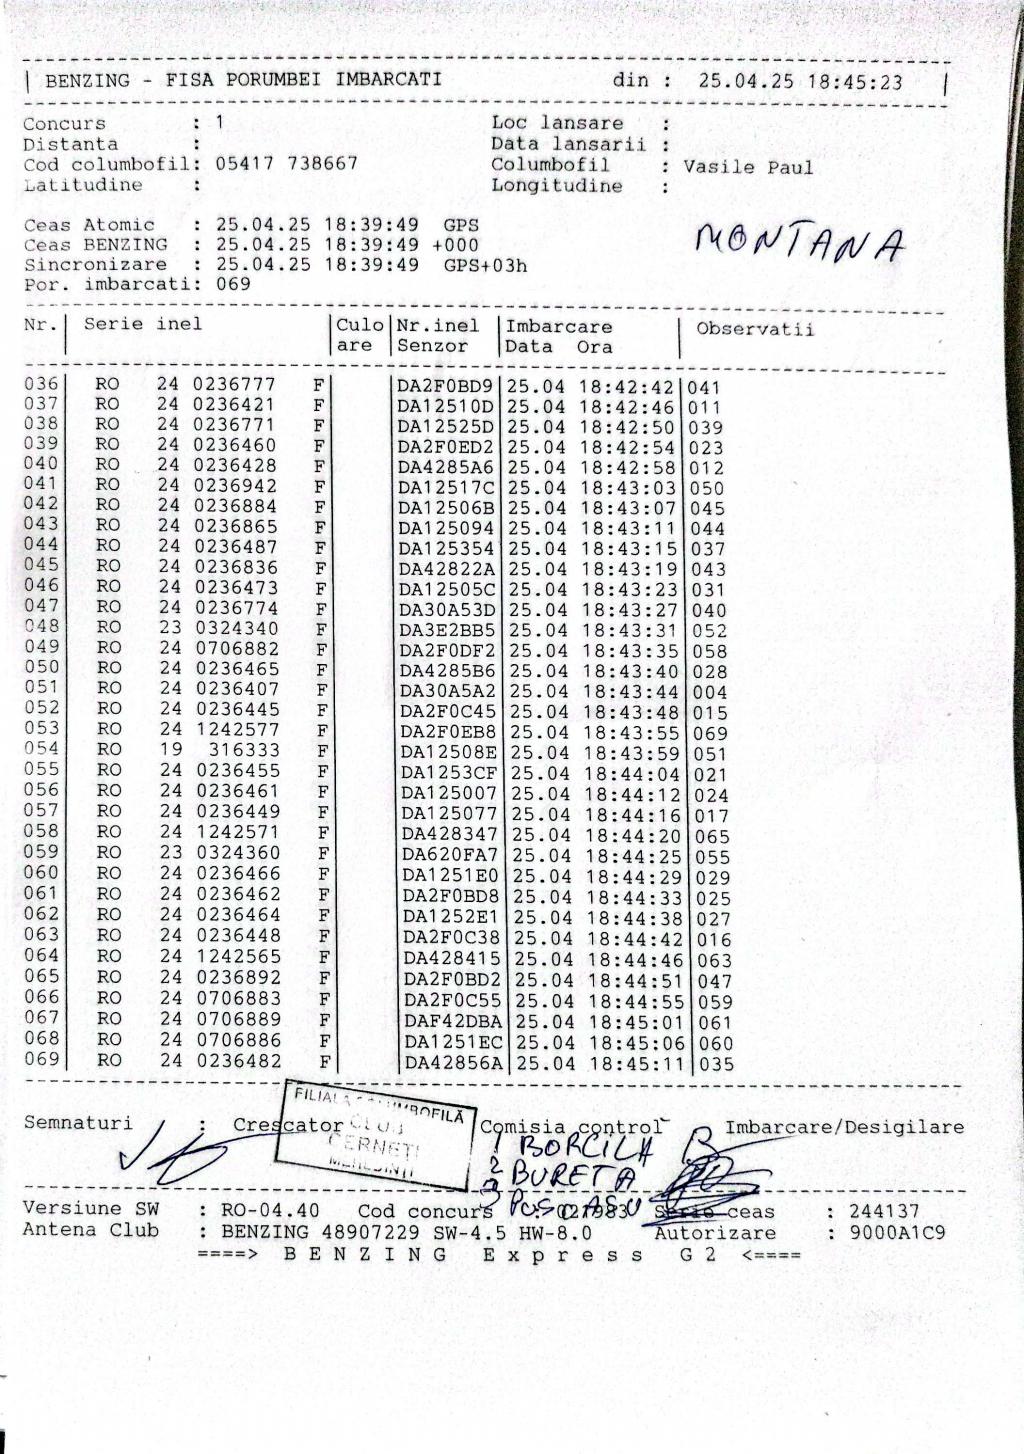 BENZING - FISA PORUMBEI IMBARCATI din : 25.04.25 18:45:23
Concurs : 1 Loc lansare :
Distanta : Data lansarii :
Cod columbofil: 05417 738667 Columbofil : Vasile Paul
Latitudine : Longitudine :
Ceas Atomic : 25.04.25 18:39:49 GPS
MONTANA
Ceas BENZING : 25.04.25 18:39:49 +000
Sincronizare : 25.04.25 18:39:49 GPS+03h
Por. imbarcati: 069
Nr.| Serie inel |Culo|Nr.inel |Imbarcare | Observatii
| |are |Senzor |Data Ora |
036| RO 24 0236777 F| |DA2F0BD9|25.04 18:42:42|041
037| RO 24 0236421 F| |DA12510D|25.04 18:42:46|011
038| RO 24 0236771 F| |DA12525D|25.04 18:42:50|039
039| RO 24 0236460 F| |DA2F0ED2|25.04 18:42:54|023
040| RO 24 0236428 F| |DA4285A6|25.04 18:42:58|012
041| RO 24 0236942 F| |DA12517C|25.04 18:43:03|050
042| RO 24 0236884 F| |DA12506B|25.04 18:43:07|045
043| RO 24 0236865 F| |DA125094|25.04 18:43:11|044
044| RO 24 0236487 F| |DA125354|25.04 18:43:15|037
045| RO 24 0236836 F| |DA42822A|25.04 18:43:19|043
046| RO 24 0236473 F| |DA12505C|25.04 18:43:23|031
047| RO 24 0236774 F| |DA30A53D|25.04 18:43:27|040
048| RO 23 0324340 F| |DA3E2BB5|25.04 18:43:31|052
049| RO 24 0706882 F| |DA2F0DF2|25.04 18:43:35|058
050| RO 24 0236465 F| |DA4285B6|25.04 18:43:40|028
051| RO 24 0236407 F| |DA30A5A2|25.04 18:43:44|004
052| RO 24 0236445 F| |DA2F0C45|25.04 18:43:48|015
053| RO 24 1242577 F| |DA2F0EB8|25.04 18:43:55|069
054| RO 19 316333 F| |DA12508E|25.04 18:43:59|051
055| RO 24 0236455 F| |DA1253CF|25.04 18:44:04|021
056| RO 24 0236461 F| |DA125007|25.04 18:44:12|024
057| RO 24 0236449 F| |DA125077|25.04 18:44:16|017
058| RO 24 1242571 F| |DA428347|25.04 18:44:20|065
059| RO 23 0324360 F| |DA620FA7|25.04 18:44:25|055
060| RO 24 0236466 F| |DA1251E0|25.04 18:44:29|029
061| RO 24 0236462 F| |DA2F0BD8|25.04 18:44:33|025
062| RO 24 0236464 F| |DA1252E1|25.04 18:44:38|027
063| RO 24 0236448 F| |DA2F0C38|25.04 18:44:42|016
064| RO 24 1242565 F| |DA428415|25.04 18:44:46|063
065| RO 24 0236892 F| |DA2F0BD2|25.04 18:44:51|047
066| RO 24 0706883 F| |DA2F0C55|25.04 18:44:55|059
067| RO 24 0706889 F| |DAF42DBA|25.04 18:45:01|061
068| RO 24 0706886 F| |DA1251EC|25.04 18:45:06|060
069| RO 24 0236482 F| |DA42856A|25.04 18:45:11|035
FILIALA COLUMBOFILĂ
Semnaturi : Crescator Comisia control Imbarcare/Desigilare
CLUJ
CERNEȚI
MEHEDINȚI
1 BORCILA
2 BURETA
3
Versiune SW : RO-04.40 Cod concurs Serie ceas : 244137
Antena Club : BENZING 48907229 SW-4.5 HW-8.0 Autorizare : 9000A1C9
====> B E N Z I N G E x p r e s s G 2 <====